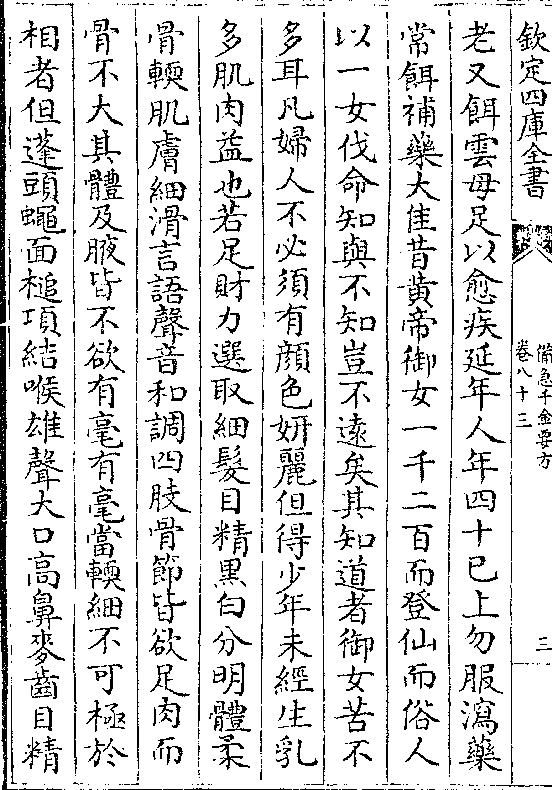 欽定四庫全書
備急千金要方
卷八十三
三
老又餌雲母足以愈疾延年人年四十已上勿服瀉藥
常餌補藥大佳昔黃帝御女一千二百而登仙而俗人
以一女伐命知與不知豈不遠矣其知道者御女苦不
多耳凡婦人不必須有顔色妍麗但得少年未經生乳
多肌肉益也若足財力選取細髮目精黑白分明體柔
骨輭肌膚細滑言語聲音和調四肢骨節皆欲足肉而
骨不大其體及腋皆不欲有毫有毫當輭細不可極於
相者但蓬頭蠅面槌項結喉雄聲大口高鼻麥齒目精